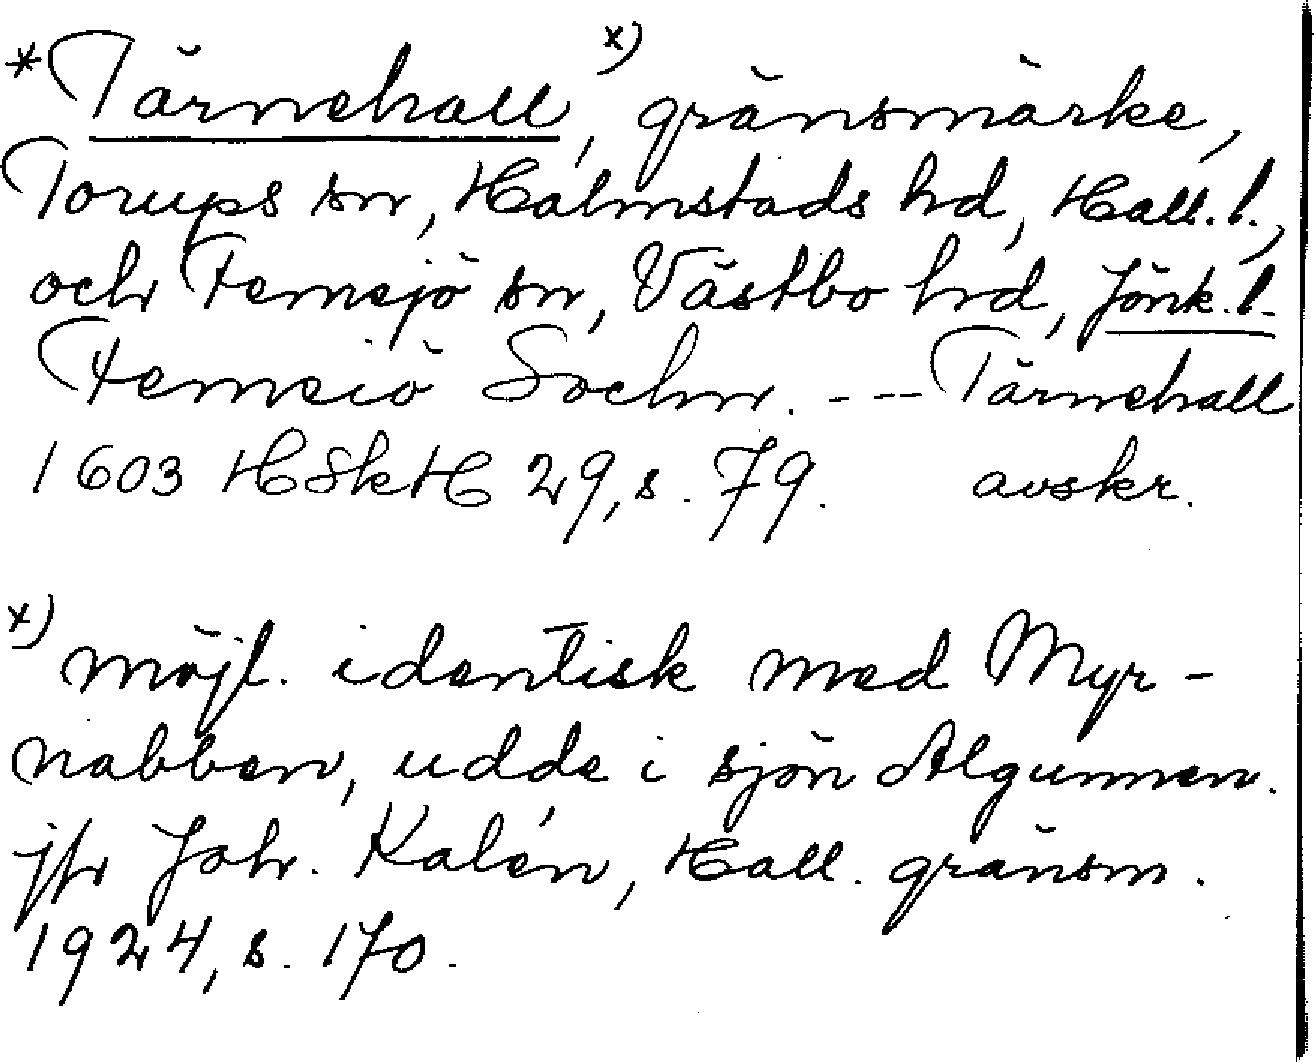 * Tärnehall, x) gränsmärke,
Torups sn, Halmstads hd, Hall. l.,
och Femsjö sn, Västbo hd, Jönk. l.
Femsiö Sochn. --- Tärnehall
1603 HSkH 29, s. 79. avskr.
x) möjl. identisk med Myr-
nabben, udde i sjön Algunnen.
jfr Joh. Kalén, Hall. gränsm.
1924, s. 170.